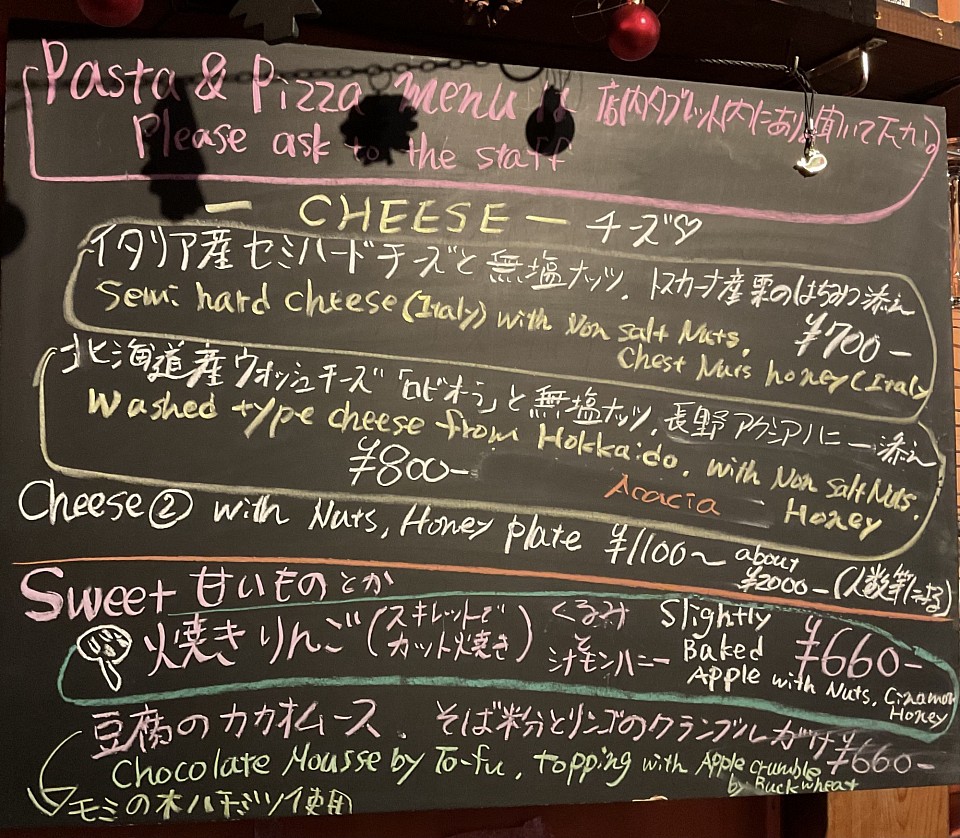 Pasta & Pizza menu is 店内タブレット内にあり〼聞いて下さい。
Please ask to the staff
— CHEESE — チーズ♡
イタリア産セミハードチーズと無塩ナッツ、トスカーナ産栗のはちみつ添え
Semi hard cheese (Italy) with Non salt Nuts, ¥700-
Chest Nuts honey (Italy
北海道産ウォッシュチーズ「ロビオーラ」と無塩ナッツ、長野アカシアハニー添え
Washed type cheese from Hokkaido, with Non salt Nuts,
¥800- Acacia Honey
Cheese② with Nuts, Honey plate ¥1100~ about
¥2000- (人数等による)
Sweet 甘いものとか
焼きりんご(スキレットでカット焼き) くるみ シナモンハニー Slightly Baked ¥660-
Apple with Nuts, Cinamon Honey
豆腐のカカオムース、そば粉とリンゴのクランブルがけ ¥660-
Chocolate Mousse by To-fu, topping with Apple crumble
by Buckwheat
モミの木ハチミツ使用